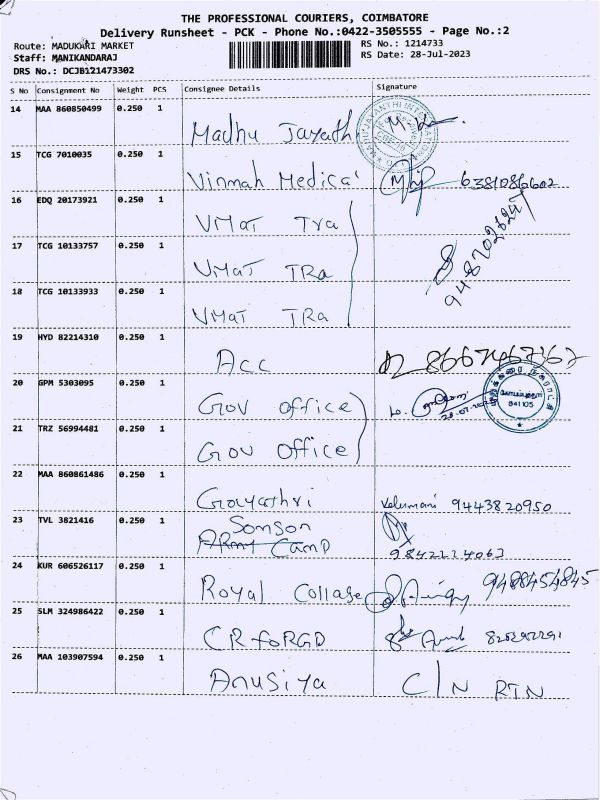 THE PROFESSIONAL COURIERS, COIMBATORE
Delivery Runsheet - PCK - Phone No.:0422-3505555 - Page No.:2
Route: MADUKARI MARKET
RS No.: 1214733
Staff: MANIKANDARAJ
RS Date: 28-Jul-2023
DRS No.: DCJB121473302
S No Consignment No Weight PCS Consignee Details Signature
14 MAA 860850499 0.250 1
Madhu Jayath
15 TCG 7010035 0.250 1
Vinmah Medical
16 EDQ 20173921 0.250 1
VMaT Tra
17 TCG 10133757 0.250 1
VMaT TRa
18 TCG 10133933 0.250 1
VMaT TRa
19 HYD 82214310 0.250 1
Acc
20 GPM 5303095 0.250 1
Gov office
641105
21 TRZ 56994481 0.250 1
Gov office
22 MAA 860861486 0.250 1
Gayathri Velumani 9443820950
23 TVL 3821416 0.250 1
Sonson
Army Camp 9842124063
24 KUR 606526117 0.250 1
Royal Collage 9488454845
25 SLM 324986422 0.250 1
CR foRGD
26 MAA 103907594 0.250 1
Anusiya C/N RTN